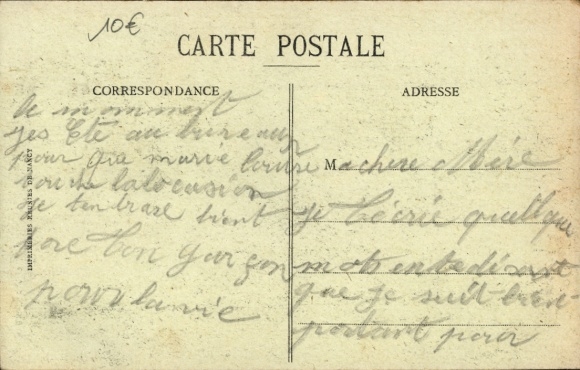 10€
CARTE POSTALE
CORRESPONDANCE
ADRESSE
IMPRIMERIES RÉUNIES DE NANCY
Ma chere Mére
je técrie quellque
mots en te disant
que je suit bien
portant pour
le momment
jes été au bureaux
pour que marie louise
lalocasion
je tenbrase bient
ton garçon
pour la vie